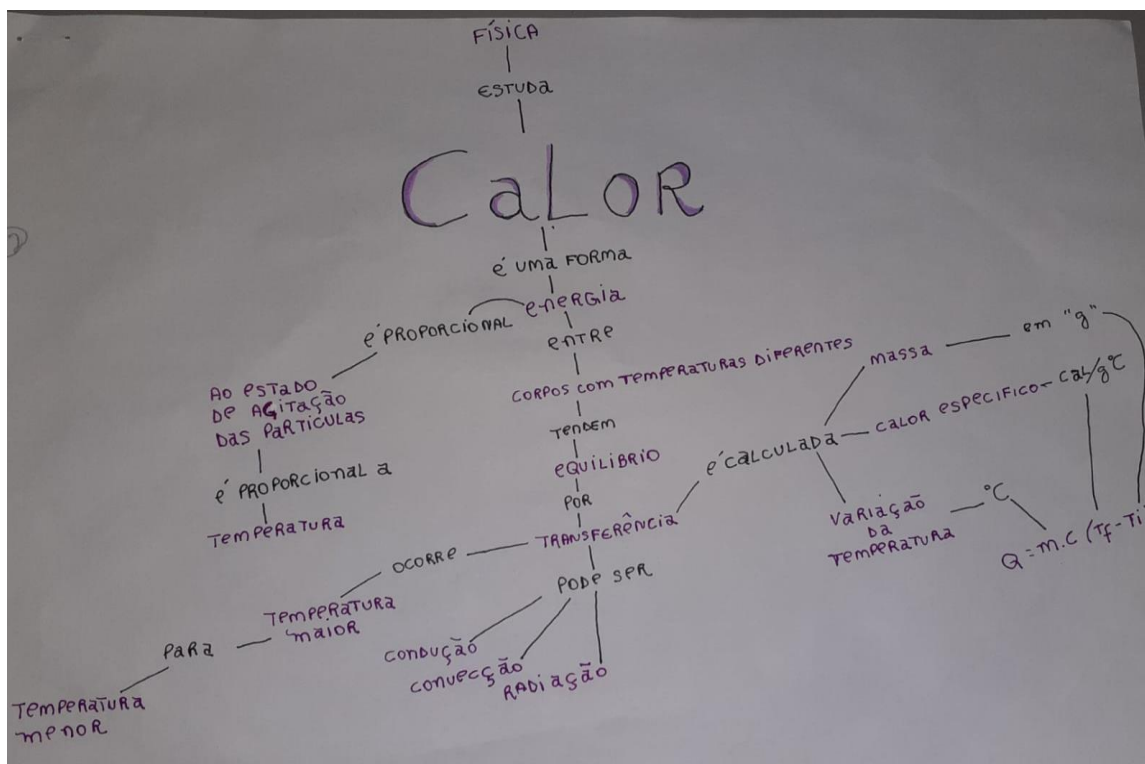 FÍSICA
ESTUDA
CALOR
é UMA FORMA
ENERGIA
é PROPORCIONAL
ENTRE
AO ESTADO
DE AGITAÇÃO
DAS PARTÍCULAS
é PROPORCIONAL A
TEMPERATURA
CORPOS COM TEMPERATURAS DIFERENTES
TENDEM
EQUILIBRIO
POR
TRANSFERÊNCIA
OCORRE
TEMPERATURA
MAIOR
PARA
TEMPERATURA
MENOR
PODE SER
CONDUÇÃO
CONVECÇÃO
RADIAÇÃO
é CALCULADA
MASSA
em "g"
CALOR ESPECIFICO
Cal/g°C
VARIAÇÃO
DA
TEMPERATURA
°C
Q = m.c (Tf - Ti)